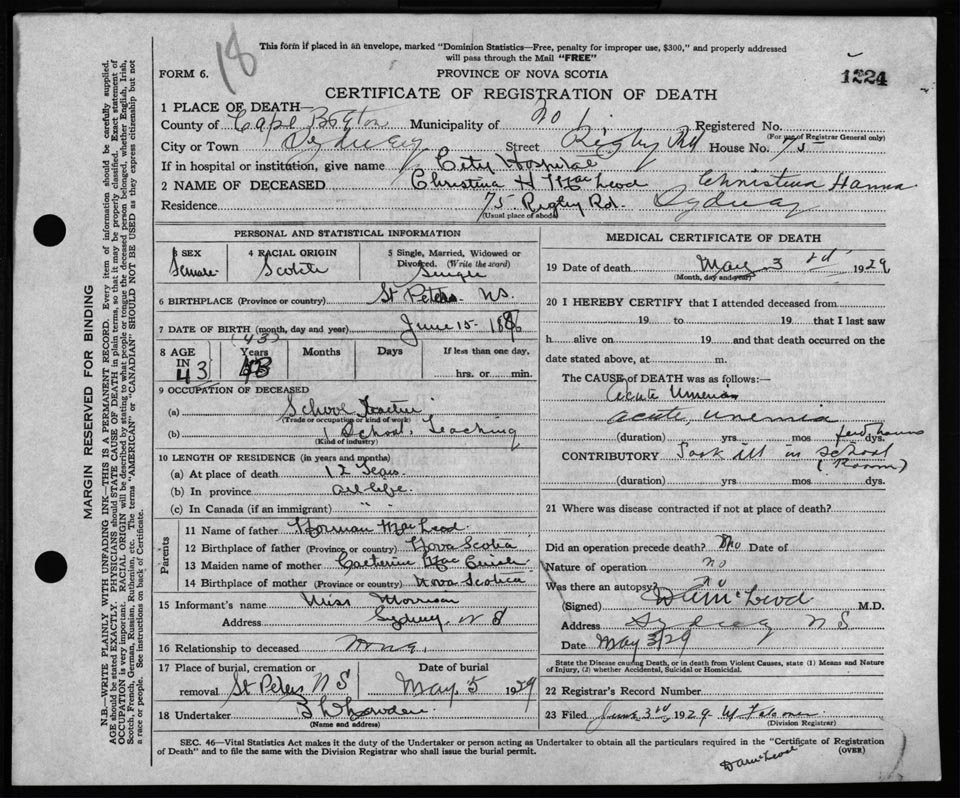 18
This form if placed in an envelope, marked "Dominion Statistics—Free, penalty for improper use, $300," and properly addressed
will pass through the Mail "FREE"
FORM 6.
PROVINCE OF NOVA SCOTIA
1224
CERTIFICATE OF REGISTRATION OF DEATH
1 PLACE OF DEATH—
County of Cape Breton Municipality of No 1 Registered No.
(For use of Registrar General only)
City or Town Sydney Street Rigby Rd House No. 75
If in hospital or institution, give name City Hospital
2 NAME OF DECEASED Christina H MacLeod Christina Hanna
Residence 75 Rigby Rd. Sydney
(Usual place of abode)
PERSONAL AND STATISTICAL INFORMATION
3 SEX Female
4 RACIAL ORIGIN Scotch
5 Single, Married, Widowed or Divorced. (Write the word) Single
6 BIRTHPLACE (Province or country) St Peters NS.
7 DATE OF BIRTH (month, day and year) June 15 1886
8 AGE IN 43 Years (43) Months Days If less than one day, hrs. or min.
9 OCCUPATION OF DECEASED
(a) School Teacher
(Trade or occupation or kind of work)
(b) School Teaching
(Kind of industry)
10 LENGTH OF RESIDENCE (in years and months)
(a) At place of death 12 Years
(b) In province all life
(c) In Canada (if an immigrant) " "
Parents
11 Name of father Norman MacLeod
12 Birthplace of father (Province or country) Nova Scotia
13 Maiden name of mother Catherine Mac
14 Birthplace of mother (Province or country) Nova Scotia
15 Informant's name Miss Morrison
Address Sydney N S
16 Relationship to deceased
17 Place of burial, cremation or removal St Peters N S
Date of burial May 5 1929
18 Undertaker
(Name and address)
MEDICAL CERTIFICATE OF DEATH
19 Date of death May 3rd 1929
(Month, day and year)
20 I HEREBY CERTIFY that I attended deceased from
19 to 19 that I last saw
h alive on 19 and that death occurred on the
date stated above, at m.
The CAUSE of DEATH was as follows:—
Acute Uremia
acute, uremia
(duration) yrs. mos few hours dys.
CONTRIBUTORY Took ill in school
(Room)
(duration) yrs. mos. dys.
21 Where was disease contracted if not at place of death?
Did an operation precede death? No Date of
Nature of operation no
Was there an autopsy? no
(Signed) McLeod M.D.
Address Sydney N S
Date May 3/29
State the Disease causing Death, or in death from Violent Causes, state (1) Means and Nature
of Injury, (2) whether Accidental, Suicidal or Homicidal.
22 Registrar's Record Number
23 Filed June 3rd 1929
(Division Registrar)
SEC. 46—Vital Statistics Act makes it the duty of the Undertaker or person acting as Undertaker to obtain all the particulars required in the "Certificate of Registration
of Death" and to file the same with the Division Registrar who shall issue the burial permit.
(OVER)
McLeod
MARGIN RESERVED FOR BINDING
N.B.—WRITE PLAINLY WITH UNFADING INK—THIS IS A PERMANENT RECORD. Every item of information should be carefully supplied.
AGE should be stated EXACTLY. PHYSICIANS should STATE CAUSE OF DEATH in plain terms, so that it may be properly classified. Exact statement of
OCCUPATION is very important. RACIAL ORIGIN will be described by stating to what people or tongue the deceased person belonged, whether English, Irish,
Scotch, French, German, Russian, Ruthenian, etc. The terms "AMERICAN" or "CANADIAN" SHOULD NOT BE USED as they express citizenship but not
a race or people. See instructions on back of Certificate.